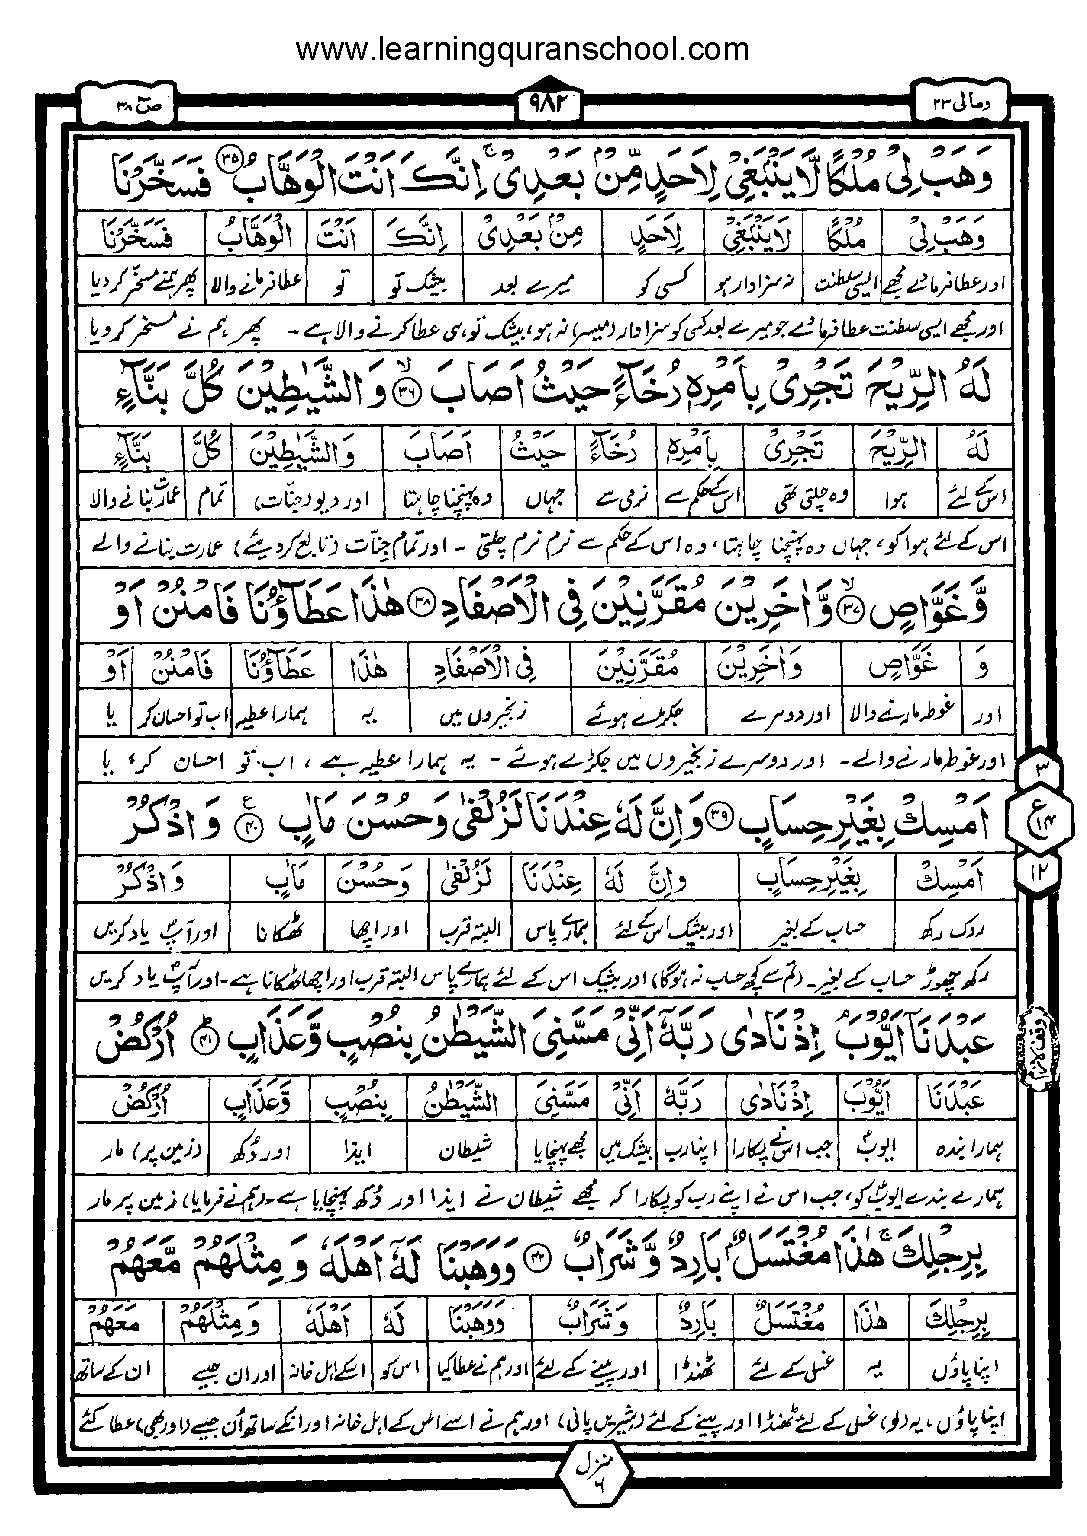 www.learningquranschool.com
ومالی ٢٣
٩٨٢
صٓ ٣٨
وَهَبْ لِیْ مُلْكًا لَّا یَنْۢبَغِیْ لِاَحَدٍ مِّنْۢ بَعْدِیْ ۚ اِنَّكَ اَنْتَ الْوَهَّابُ ۝٣٥ فَسَخَّرْنَا
وَهَبْ لِیْ مُلْكًا لَا یَنْۢبَغِیْ لِاَحَدٍ مِنْۢ بَعْدِیْ اِنَّكَ اَنْتَ الْوَهَّابُ فَسَخَّرْنَا
اور عطا فرما دے مجھے ایسی سلطنت نہ سزاوار ہو کسی کو میرے بعد بیشک تو تو عطا فرمانے والا پھر ہمنے مسخر کر دیا
اور مجھے ایسی سلطنت عطا فرما دے جو میرے بعد کسی کو سزاوار (میسر) نہ ہو، بیشک تو ہی عطا کرنے والا ہے ۔ پھر ہم نے مسخر کر دیا
لَهُ الرِّیْحَ تَجْرِیْ بِاَمْرِهٖ رُخَآءً حَیْثُ اَصَابَ ۝٣٦ۙ وَالشَّیٰطِیْنَ كُلَّ بَنَّآءٍ
لَهُ الرِّیْحَ تَجْرِیْ بِاَمْرِهٖ رُخَآءً حَیْثُ اَصَابَ وَالشَّیٰطِیْنَ كُلَّ بَنَّآءٍ
اس کے لئے ہوا وہ چلتی تھی اس کے حکم سے نرمی سے جہاں وہ پہنچنا چاہتا اور دیو (جنات) تمام عمارت بنانے والا
اس کے لئے ہوا کو، جہاں وہ پہنچنا چاہتا، وہ اس کے حکم سے نرم نرم چلتی ۔ اور تمام جنات (تابع کر دیئے) عمارت بنانے والے
وَّغَوَّاصٍ ۝٣٧ۙ وَّاٰخَرِیْنَ مُقَرَّنِیْنَ فِی الْاَصْفَادِ ۝٣٨ هٰذَا عَطَآؤُنَا فَامْنُنْ اَوْ
وَ غَوَّاصٍ وَاٰخَرِیْنَ مُقَرَّنِیْنَ فِی الْاَصْفَادِ هٰذَا عَطَآؤُنَا فَامْنُنْ اَوْ
اور غوطہ مارنے والا اور دوسرے جکڑے ہوئے زنجیروں میں یہ ہمارا عطیہ اب تو احسان کر یا
اور غوطہ مارنے والے ۔ اور دوسرے زنجیروں میں جکڑے ہوئے ۔ یہ ہمارا عطیہ ہے ، اب تو احسان کر، یا
٣
ع ١٤
١٢
اَمْسِكْ بِغَیْرِ حِسَابٍ ۝٣٩ وَاِنَّ لَهٗ عِنْدَنَا لَزُلْفٰی وَحُسْنَ مَاٰبٍ ۝٤٠ۧ وَاذْكُرْ
اَمْسِكْ بِغَیْرِ حِسَابٍ وَاِنَّ لَهٗ عِنْدَنَا لَزُلْفٰی وَحُسْنَ مَاٰبٍ وَاذْكُرْ
روک رکھ حساب کے بغیر اور بیشک اس کے لئے ہمارے پاس البتہ قرب اور اچھا ٹھکانا اور آپؐ یاد کریں
رکھ چھوڑ حساب کے بغیر ۔ (تم سے کچھ حساب نہ ہوگا) اور بیشک اس کے لئے ہمارے پاس البتہ قرب اور اچھا ٹھکانا ہے ۔ اور آپؐ یاد کریں
وقف لازم
عَبْدَنَاۤ اَیُّوْبَ ۘ اِذْ نَادٰی رَبَّهٗۤ اَنِّیْ مَسَّنِیَ الشَّیْطٰنُ بِنُصْبٍ وَّعَذَابٍ ۝٤١ؕ اُرْكُضْ
عَبْدَنَا اَیُّوْبَ اِذْ نَادٰی رَبَّهٗ اَنِّیْ مَسَّنِیَ الشَّیْطٰنُ بِنُصْبٍ وَّعَذَابٍ اُرْكُضْ
ہمارا بندہ ایوبؑ جب اس نے پکارا اپنا رب بیشک میں مجھے پہنچایا شیطان ایذا اور دُکھ (زمین پر) مار
ہمارے بندے ایوبؑ کو، جب اس نے اپنے رب کو پکارا کہ مجھے شیطان نے ایذا اور دُکھ پہنچایا ہے ۔ (ہم نے فرمایا) زمین پر مار
بِرِجْلِكَ ۚ هٰذَا مُغْتَسَلٌۢ بَارِدٌ وَّشَرَابٌ ۝٤٢ وَوَهَبْنَا لَهٗۤ اَهْلَهٗ وَمِثْلَهُمْ مَّعَهُمْ
بِرِجْلِكَ هٰذَا مُغْتَسَلٌ بَارِدٌ وَشَرَابٌ وَوَهَبْنَا لَهٗ اَهْلَهٗ وَمِثْلَهُمْ مَعَهُمْ
اپنا پاؤں یہ غسل کے لئے ٹھنڈا اور پینے کے لئے اور ہم نے عطا کیا اس کو اسکے اہل خانہ اور ان جیسے ان کے ساتھ
اپنا پاؤں ، یہ (لو) غسل کے لئے ٹھنڈا اور پینے کے لئے (شیریں پانی) ، اور ہم نے اسے اس کے اہل خانہ اور انکے ساتھ اُن جیسے (اور بھی) عطا کئے
منزل ٦